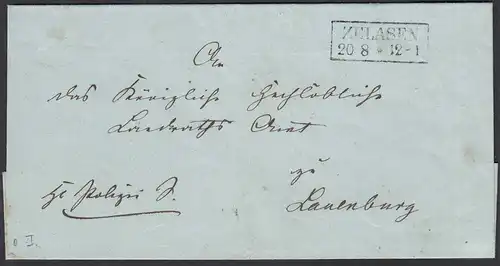 ZELASEN
20 8 * 12-1
An
das Königliche Hochlöbliche
Landraths Amt
zu
Lauenburg
Polizei S.
I.